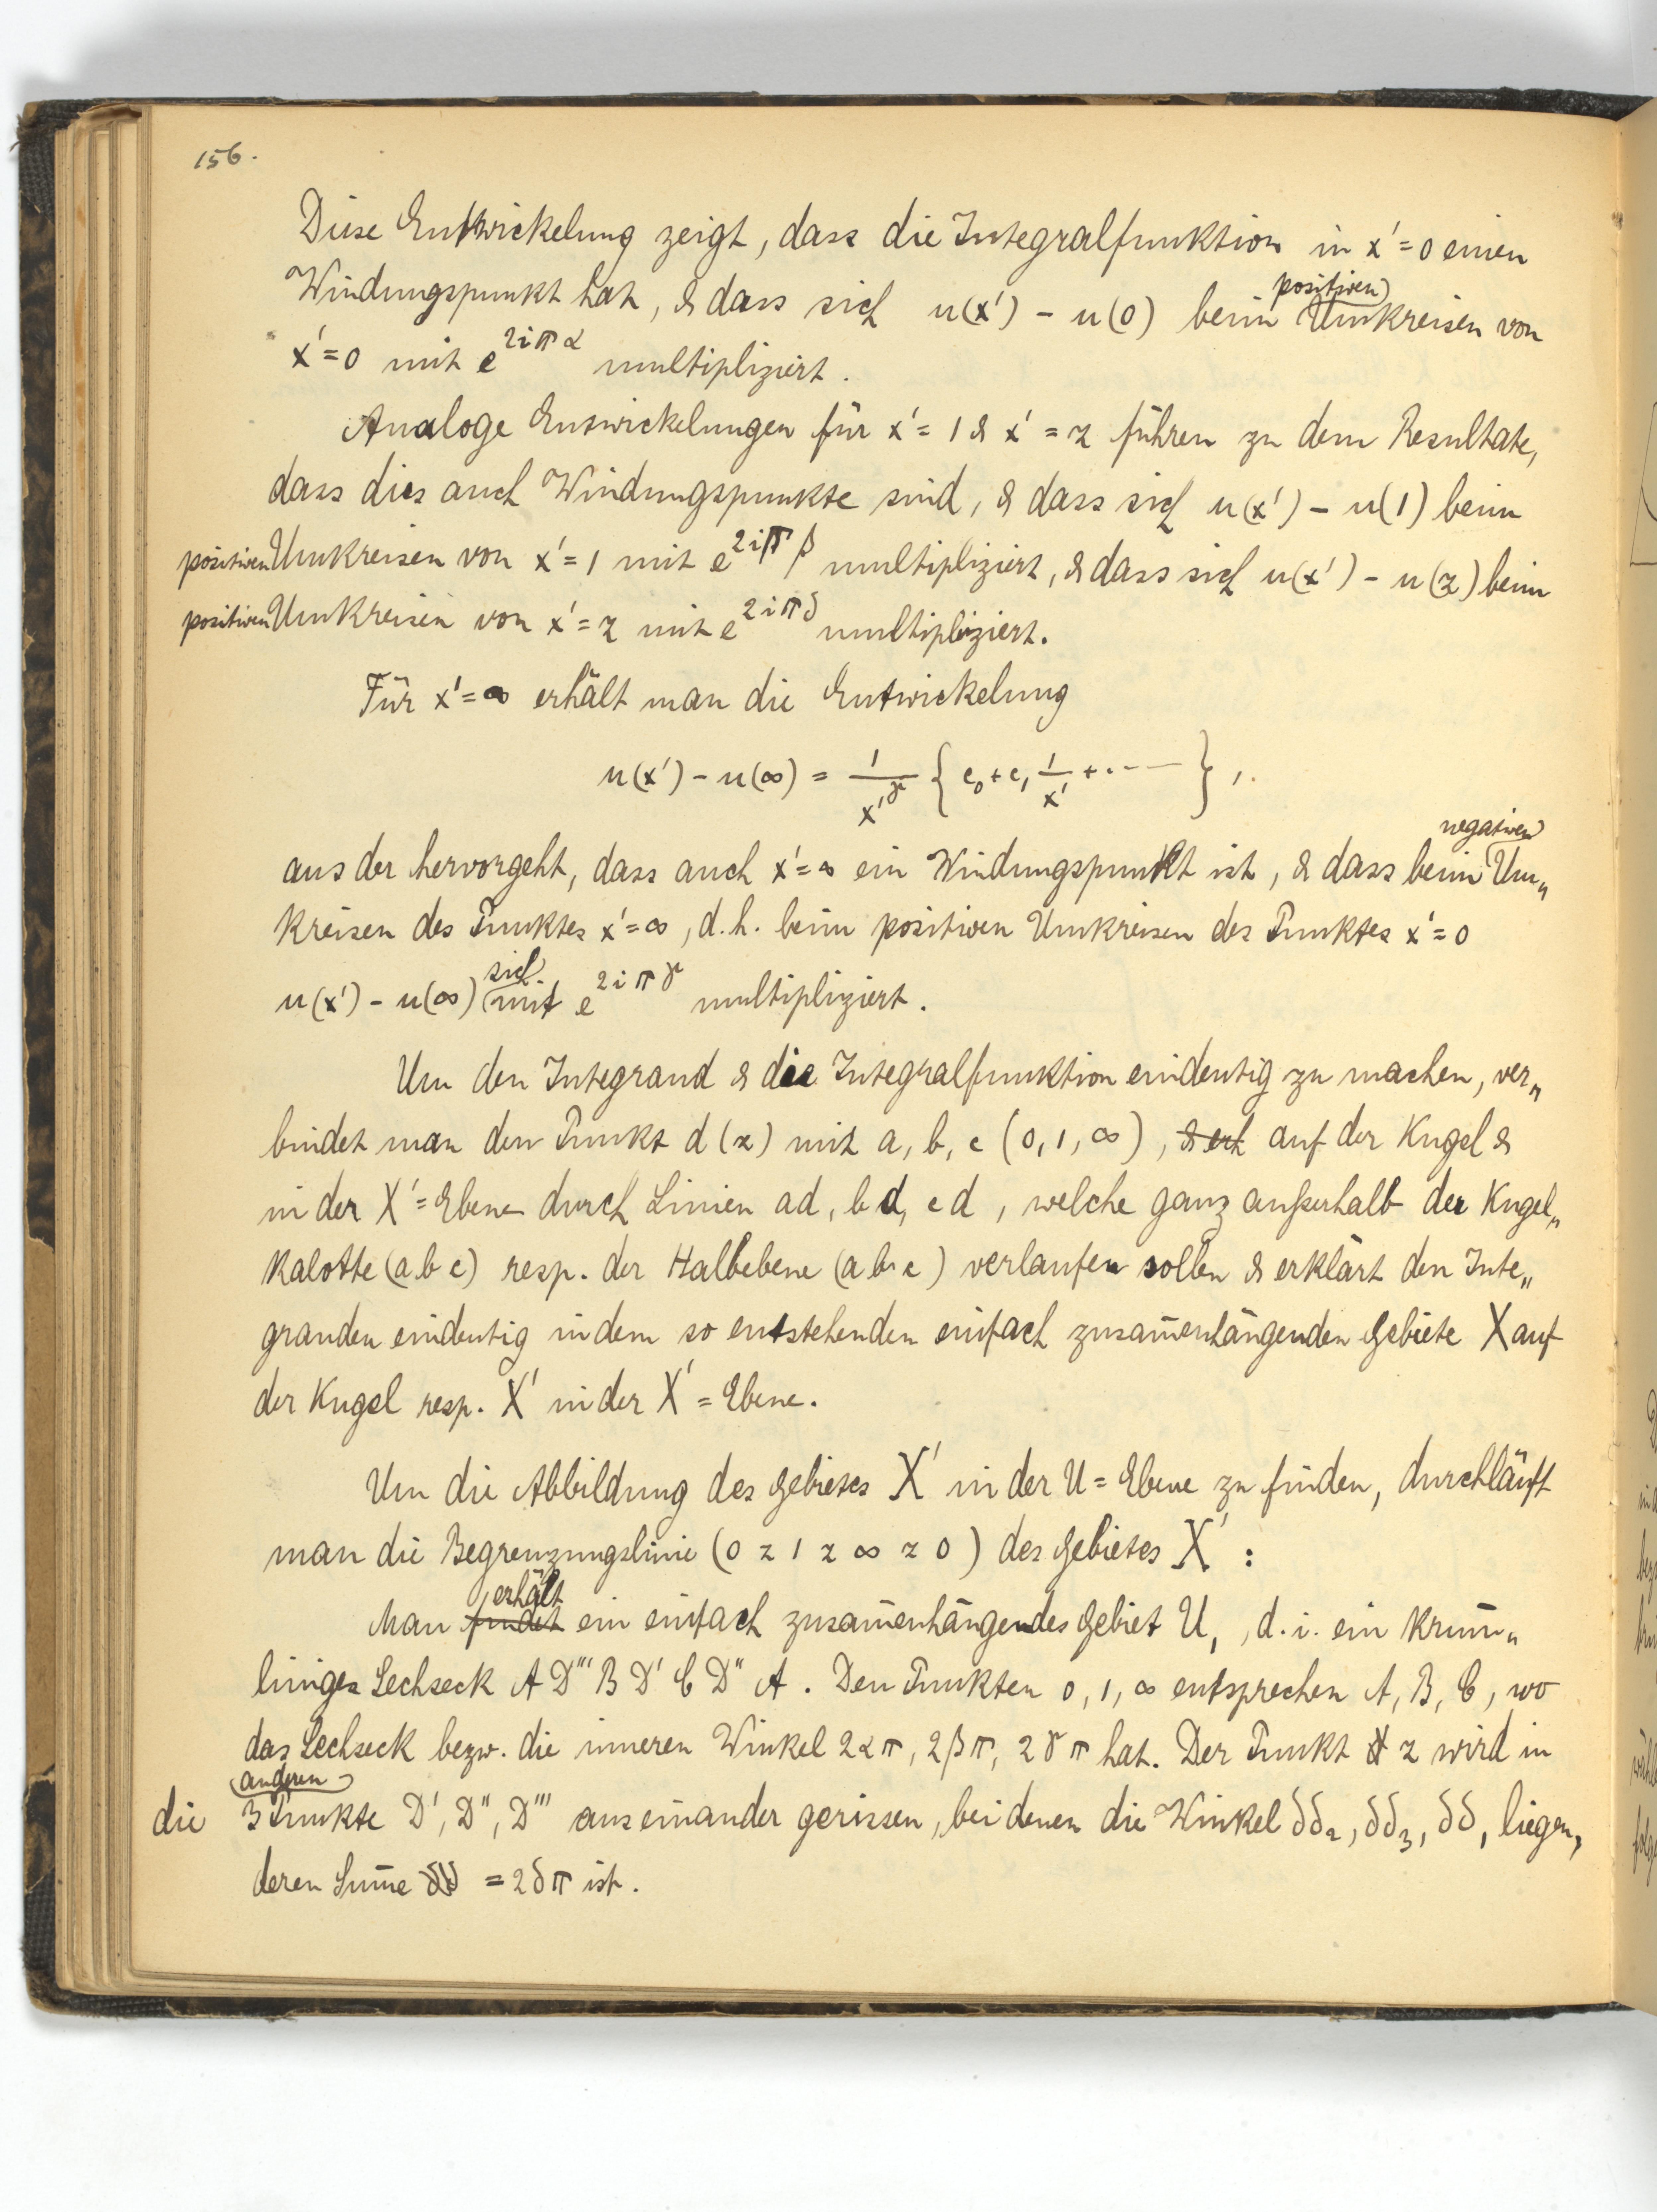 156.
Diese Entwickelung zeigt, dass die Integralfunktion in x' = 0 einen
Windungspunkt hat, & dass sich u(x') - u(0) beim positiven Umkreisen von
x' = 0 mit e^{2iπα} multipliziert.
Analoge Entwickelungen für x' = 1 & x' = z führen zu dem Resultate,
dass dies auch Windungspunkte sind, & dass sich u(x') - u(1) beim
positiven Umkreisen von x' = 1 mit e^{2iπβ} multipliziert, & dass sich u(x') - u(z) beim
positiven Umkreisen von x' = z mit e^{2iπδ} multipliziert.
Für x' = ∞ erhält man die Entwickelung
u(x') - u(∞) = 1/x'^γ { c₀ + c₁ 1/x' + ..... },
aus der hervorgeht, dass auch x' = ∞ ein Windungspunkt ist, & dass beim negativen Um„
kreisen des Punktes x' = ∞, d.h. beim positiven Umkreisen des Punktes x' = 0
u(x') - u(∞) sich mit e^{2iπγ} multipliziert.
Um den Integrand & die Integralfunktion eindeutig zu machen, ver„
bindet man den Punkt d (z) mit a, b, c (0, 1, ∞), auf der Kugel &
in der X' = Ebene durch Linien ad, bd, cd, welche ganz außerhalb der Kugel„
kalotte (abc) resp. der Halbebene (abc) verlaufen sollen & erklärt den Inte„
granden eindeutig in dem so entstehenden einfach zusam̄enhängenden Gebiete X auf
der Kugel resp. X' in der X' = Ebene.
Um die Abbildung des Gebietes X' in der U = Ebene zu finden, durchläuft
man die Begrenzungslinie (0 z 1 z ∞ z 0) des Gebietes X' :
Man findet erhält ein einfach zusam̄enhängendes Gebiet U, , d.i. ein krum̄„
liniges Sechseck A D''' B D' C D'' A. Den Punkten 0, 1, ∞ entsprechen A, B, C, wo
das Sechseck bezw. die inneren Winkel 2απ, 2βπ, 2γπ hat. Der Punkt z wird in
die anderen 3 Punkte D', D'', D''' auseinander gerissen, bei denen die Winkel δδ₂, δδ₃, δδ, liegen,
deren Sum̄e = 2δπ ist.